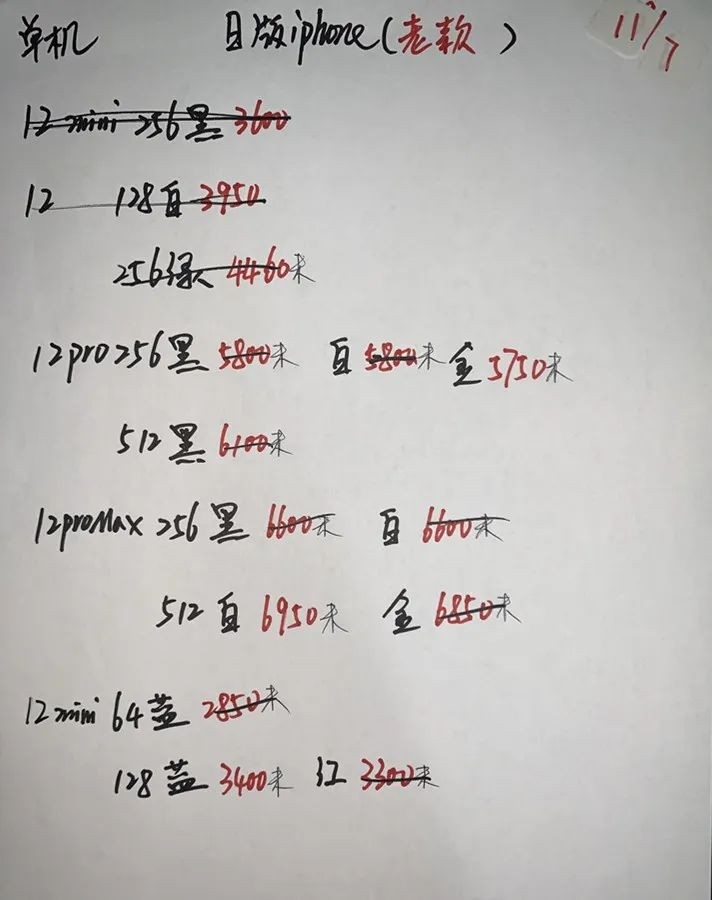 单机 日版iphone(老款) 11/7
12 mini 256黑 3600
12 128白 3950
256绿 4460未
12pro 256黑 5800未 白 5800未 金 5750未
512黑 6100未
12proMax 256黑 6600未 白 6600未
512白 6950未 金 6850未
12mini 64蓝 2850未
128蓝 3400未 红 3300未